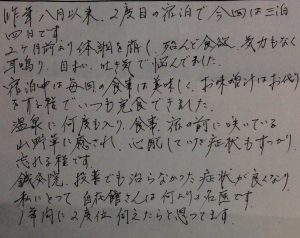 昨年八月以来、2度目の宿泊で今回は三泊
四日です。
2ヶ月前より体調を崩し、殆んど食欲、気力もなく
耳鳴り、目まい、吐き気で悩んでました。
宿泊中は毎回の食事は美味しく、お味噌汁はお代り
をする程でいつも完食できました。
温泉に何度も入り、食事、宿の前に咲いている
山野草に癒され、心配していた症状もすっかり
忘れる程です。
鍼灸院、投薬でも治らなかった症状が良くなり、
私にとって 自在館さんは何よりの名医です。
1年内に2度位 伺えたらと思ってます。